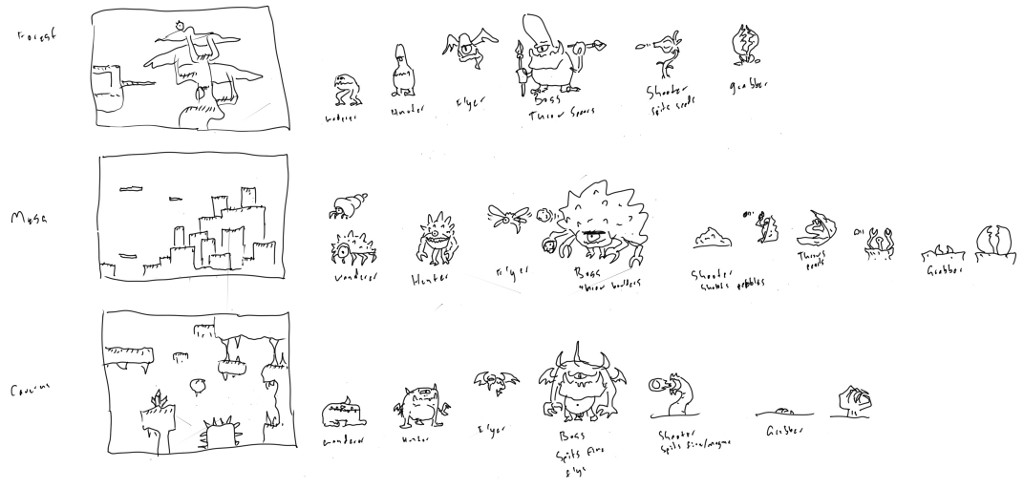 Forest
wonderer
Hunter
Flyer
Boss
Throw Spears
Shooter
Spits seeds
grabber
Mesa
wonderer
Hunter
Flyer
Boss
throw boulders
Shooter
shoots pebbles
Throws
Grabber
Caverns
wonderer
Hunter
Flyer
Boss
Spits Fire
Flys
Shooter
Spits Fire/magma
Grabber